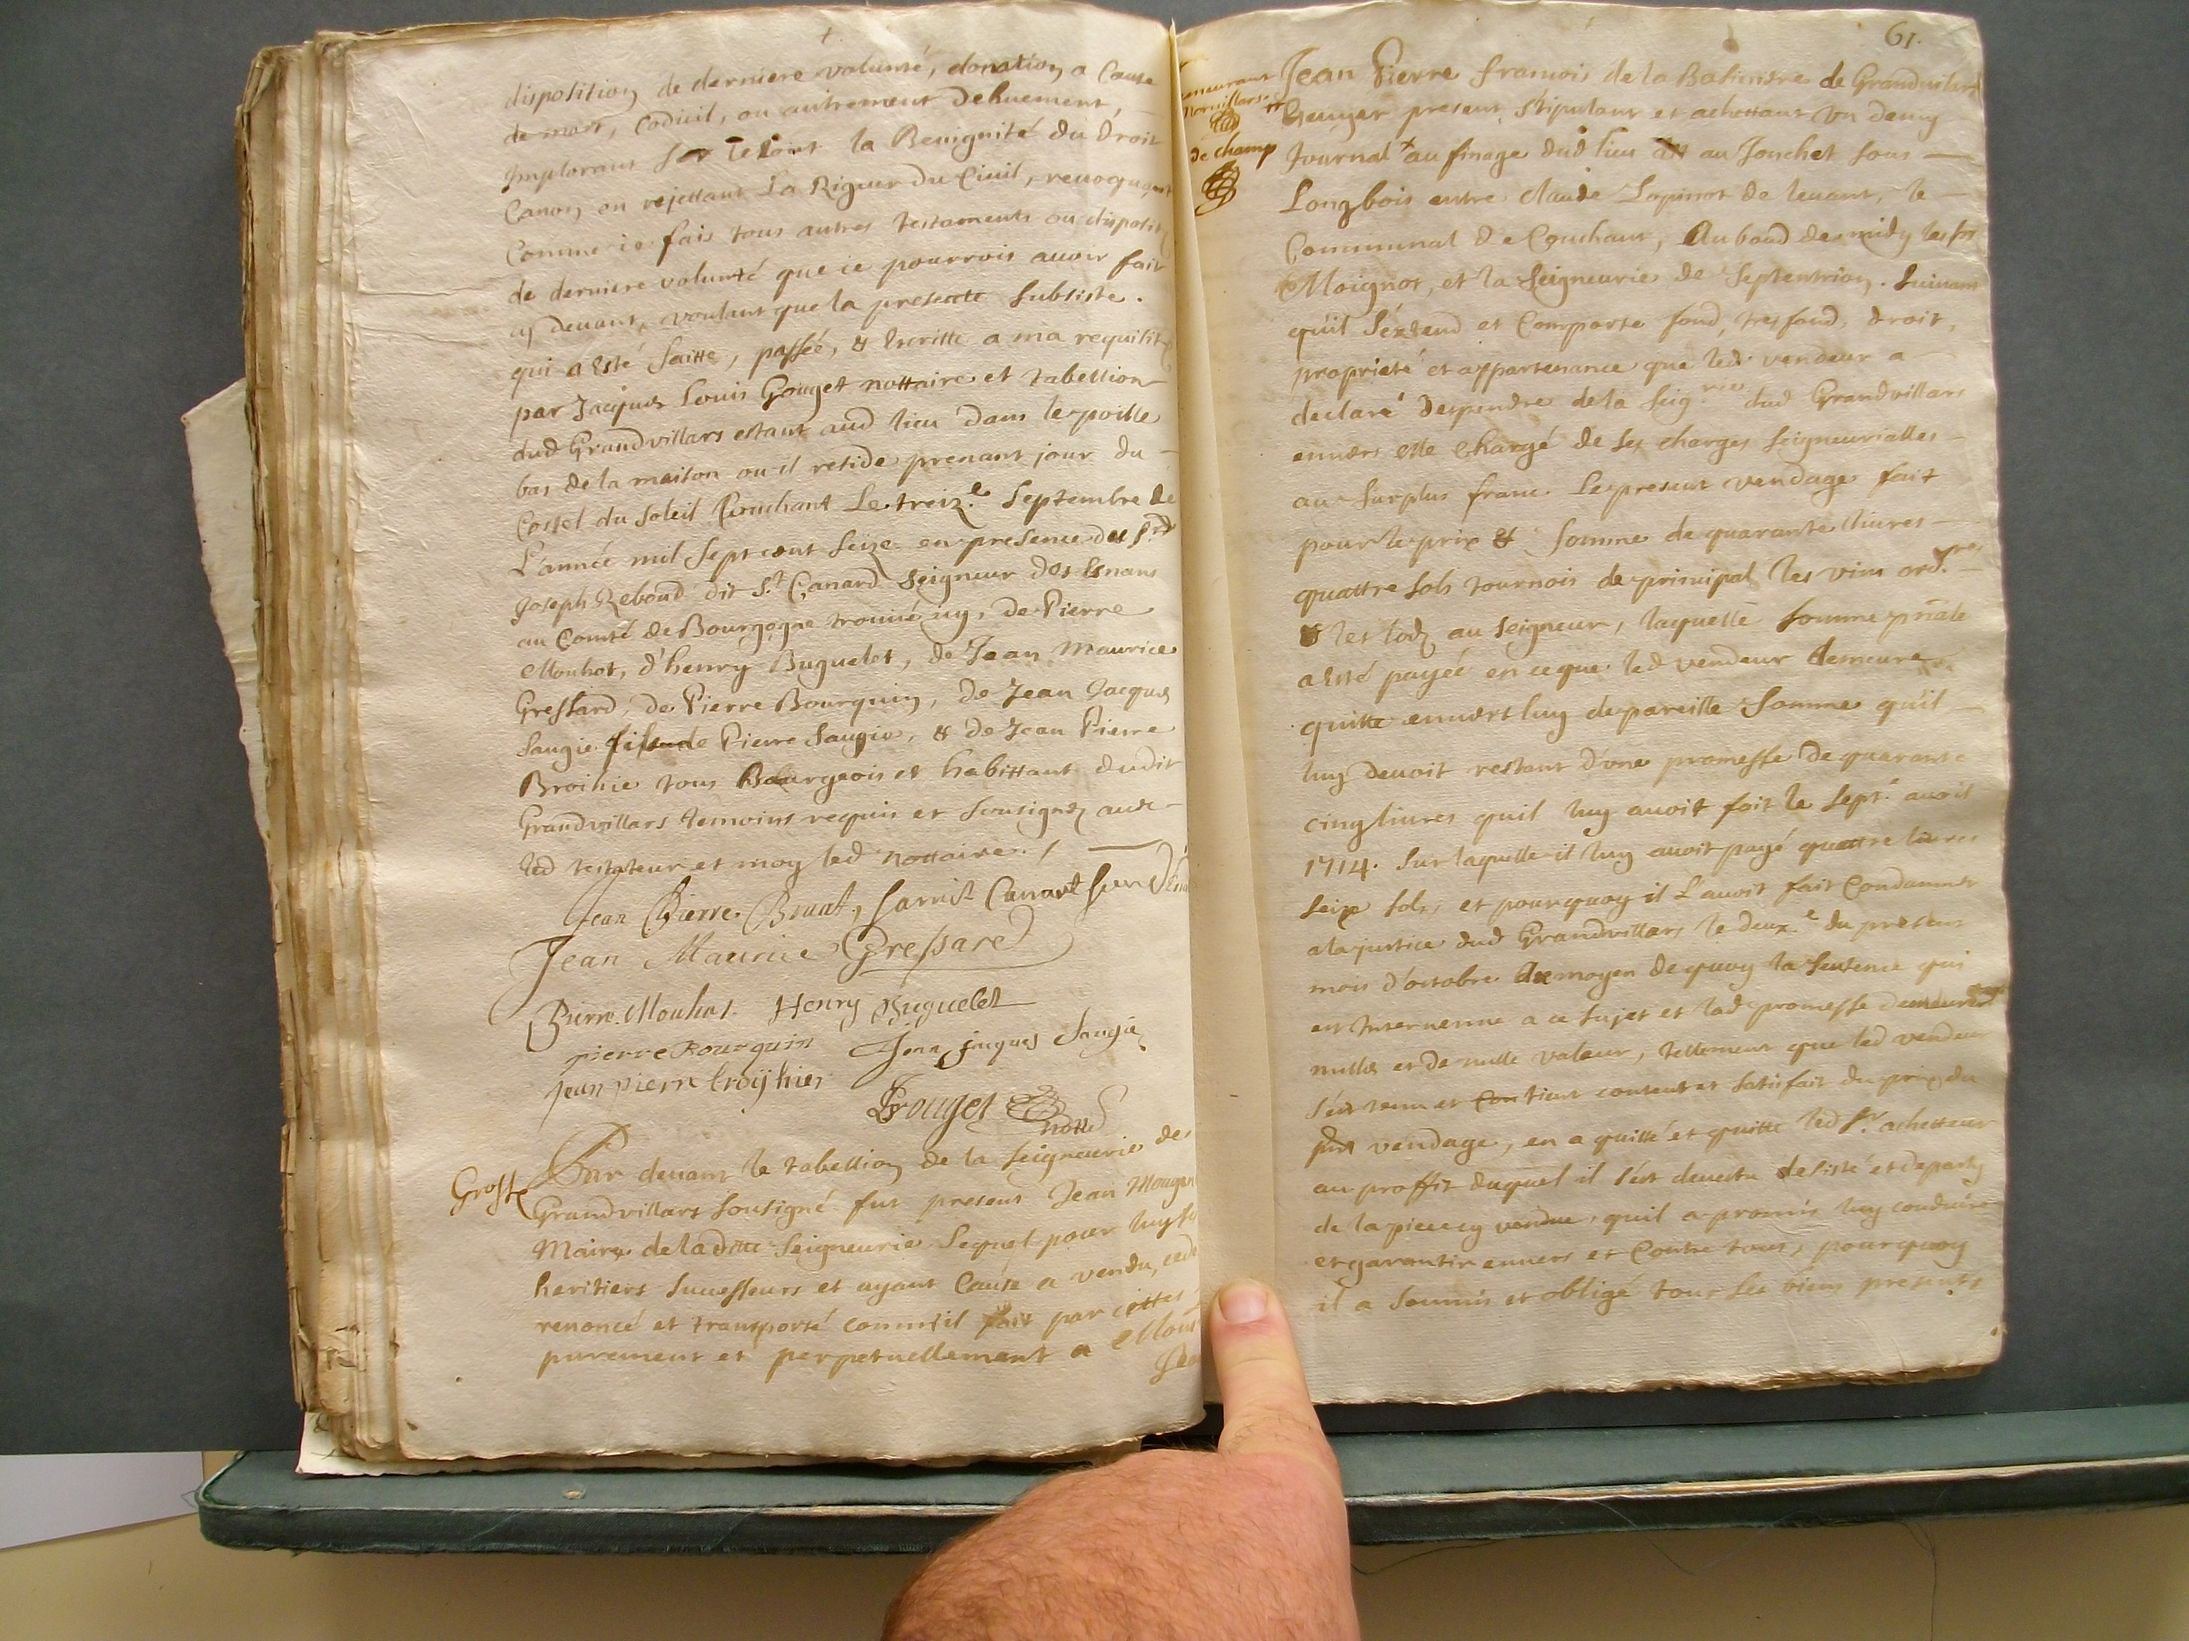 disposition de derniere volunté, donation a Cause
de mort, Codicil, ou autrement dehuement,
Implorant sur le tout la Benignité du Droit
Canon en rejettant La Rigueur du Civil, revocquant
Comme ie fais tous autres testaments ou disposit
de derniere volunté que ie pourrois avoir fait
cy devant, voulant que la presente subsiste.
qui a esté faitte, passée, & Escritte a ma requisit
par Jacques Louis Gouget nottaire et tabellion
dud Grandvillars estant aud lieu dans le poille
bas de la maison ou il reside prenant jour du
Costel du soleil Couchant Le treiz.e Septembre de
L'année mil sept cent seize en presence du
Joseph Reboud dit S.t Canard Seigneur des Esnans
au Comté de Bourgogne trouvé icy, de Pierre
Mouhot, d'henry Buguelet, de Jean Maurice
Gressard, de Pierre Bourquin, de Jean Jacques
Saugie fils de Pierre Saugie, & de Jean Pierre
Broihie tous Bourgeois et habittant dudit
Grandvillars temoins requis et sousignez avec
led testateur et moy led nottaire. /
Jean Pierre Bruat, Canart
Jean Maurice Gressard
Pierre Mouhot. Henry Buguelet
pierre Bourquin Jean jacques Saugie
jean pierre broijhier
Gouget notte
Grosse
Par devant le tabellion de la Seigneurie de
Grandvillars sousigné fut present Jean Mougin
Maire de laditte Seigneurie Lequel pour luy ses
heritiers successeurs et ayant Cause a vendu, cedé
renoncé et transporté comm'il fait par cettes
purement et perpetuellement a Mons
Jea
61.
demeurant
Morvillars
de champ
Jean Pierre francois de la Basinière de Grandvillars
Escuyer present, stipulant et achettant un demy
Journal x au finage dud lieu au Jonchet sous
Longbois entre claude Lopinot de levant, le
Communal de Couchant, Au boud de midy les srs
Moignot, et la Seigneurie de Septentrion. suivant
qu'il s'éxtend et Comporte fond, tresfond, droit,
propriété et appartenance que led vendeur a
declaré despendre de la Seig.rie dud Grandvillars
envers elle chargé de ses charges seigneurialles
au surplus franc. Le present vendage fait
pour le prix & somme de quarante livres
quattre sols tournois de principal les vins ord.res
& les lodz au Seigneur, laquelle somme p̄nale
a esté payée en ce que led vendeur demeure
quitte envers luy de pareille somme qu'il
luy devoit restant d'une promesse de quarante
cinq livres qu'il luy avoit fait le sept.e avril
1714. sur laquelle il luy avoit payé quattre livres
seize sols, et pourquoy il L'avoit fait Condamner
a la justice dud Grandvillars le deux.e du present
mois d'octobre Au moyen de quoy la sentence qui
est Intervenue a ce sujet et lad promesse demeurent
nulles et de nulle valeur, tellement que led vendeur
s'est tenu et tient content et satisfait du prix du
p̄nt vendage, en a quitté et quitte led S.r achetteur
au proffit duquel il s'est devestu desisté et departy
de la piece cy vendue, quil a promis luy conduire
et garantir envers et Contre tous, pourquoy
il a soumis et obligé tous ses biens presents